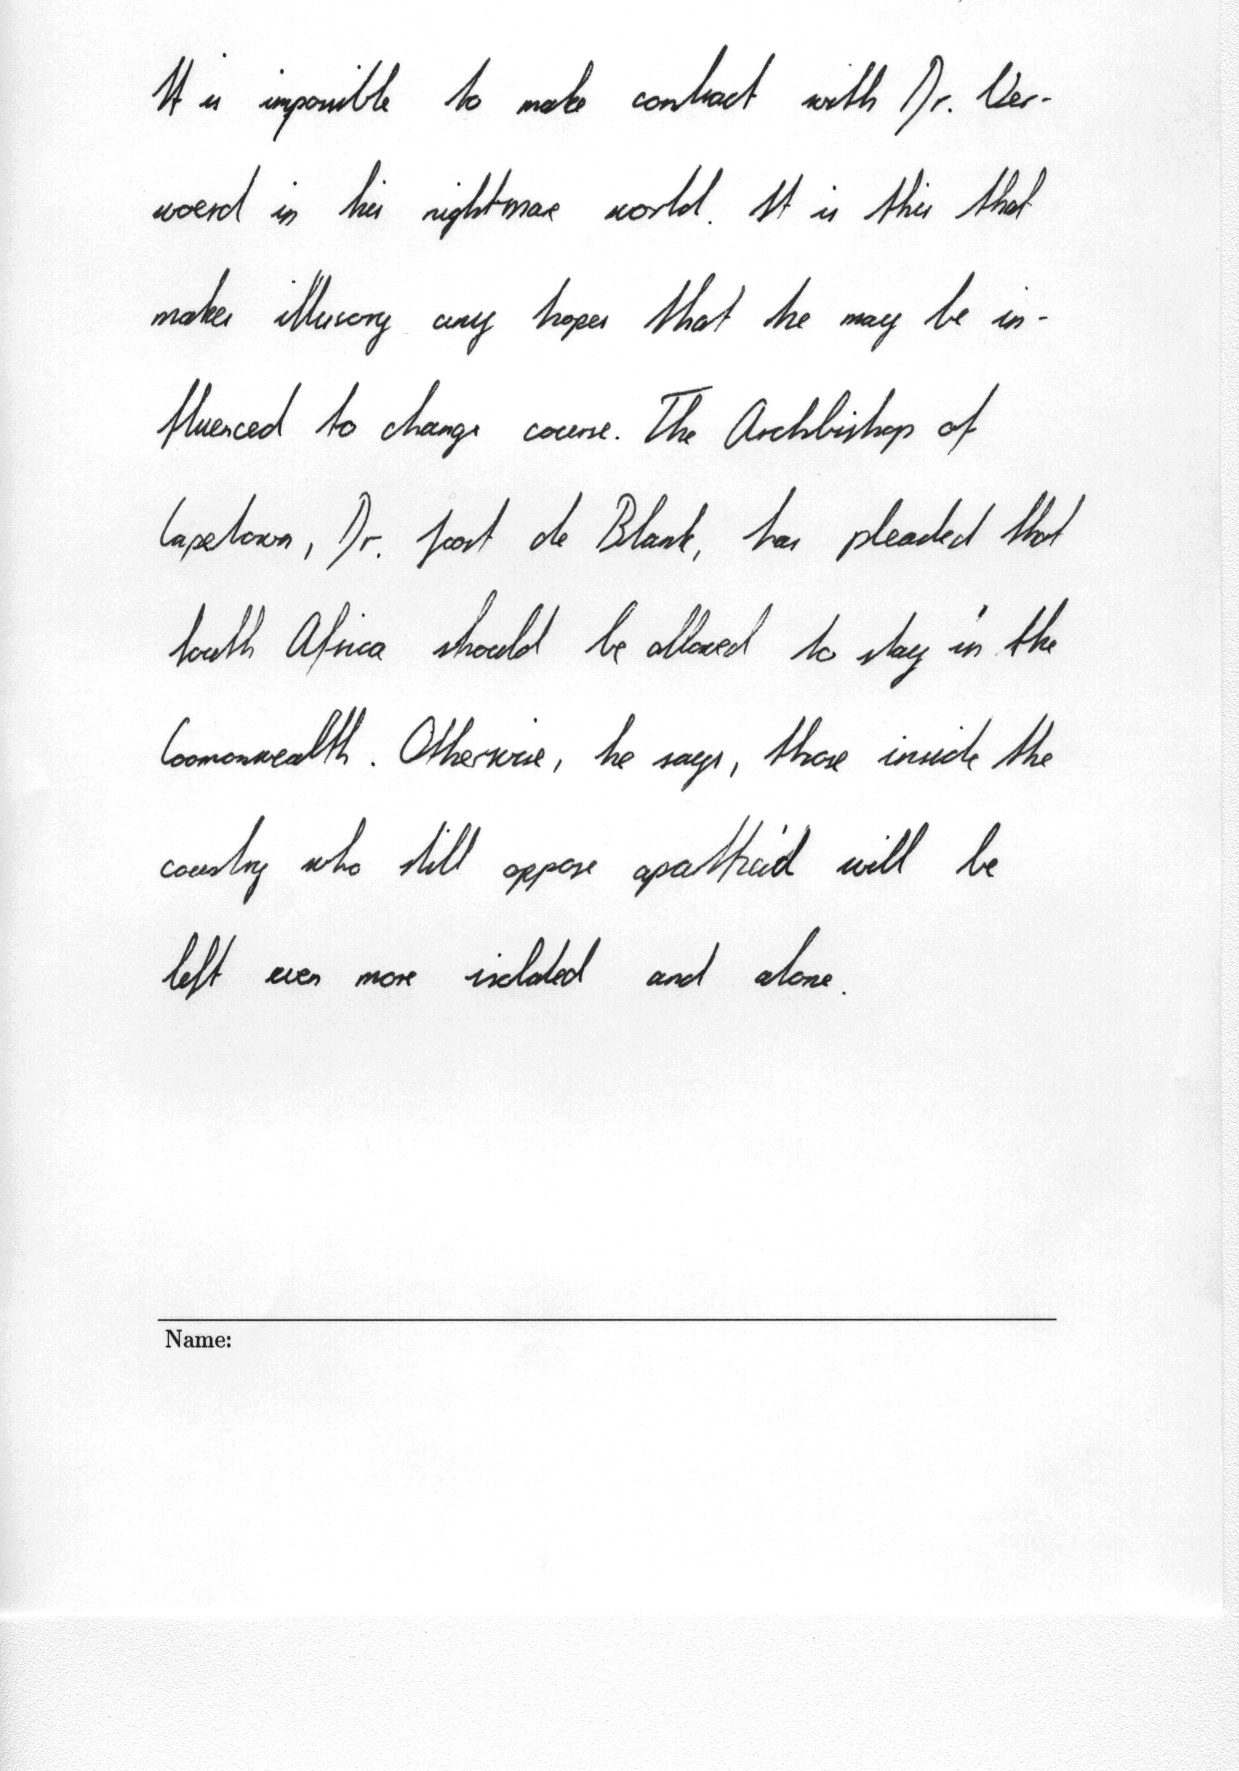 It is impossible to make contact with Dr. Ver-
woerd in his nightmare world. It is this that
makes illusory any hopes that he may be in-
fluenced to change course. The Archbishop of
Capetown, Dr. Joost de Blank, has pleaded that
South Africa should be allowed to stay in the
Coomonwealth. Otherwise, he says, those inside the
country who still oppose apartheid will be
left even more isolated and alone.
Name: